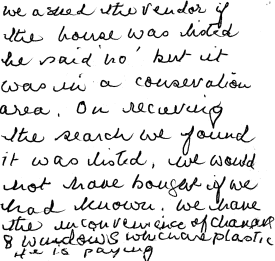 we asked the vendor if
the house was listed
he said 'no' but it
was in a conservation
area. On recieving
the search we found
it was listed, we would
not have bought if we
had known. We have
the inconvenience of change
8 windows which are plastic
He is paying